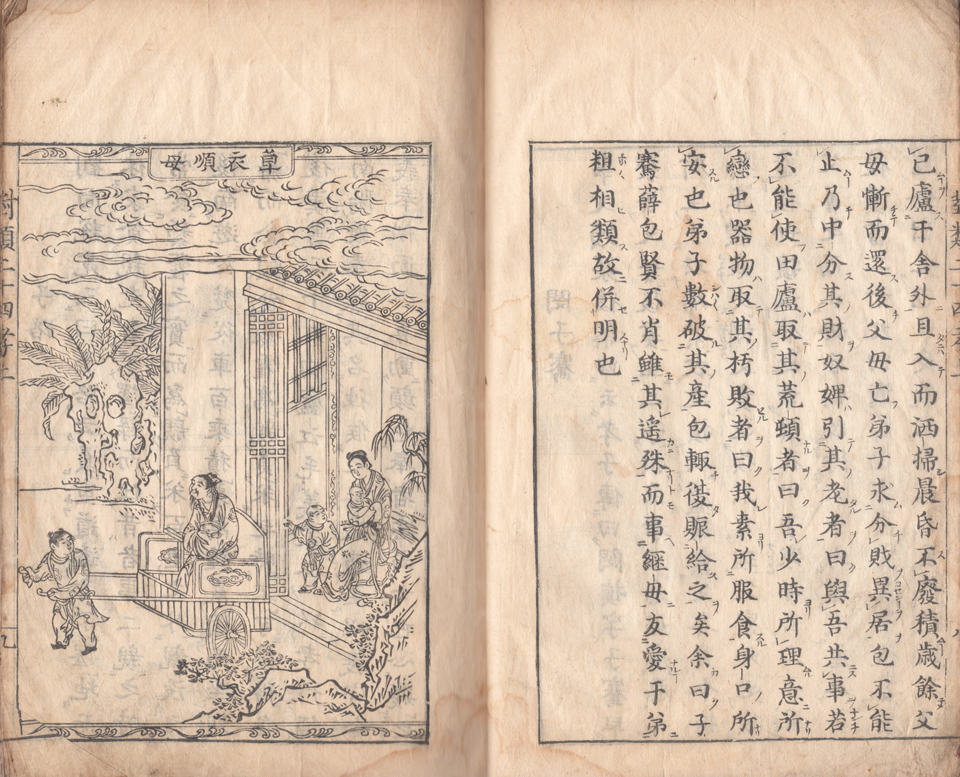 已廬于舍外旦入而洒掃晨昏不廢積歲餘父
母慚而還後父母亡弟子求分財異居包不能
止乃中分其財奴婢引其老者曰與吾共事若
不能使田廬取其荒頓者曰吾少時所理意所
戀也器物取其朽敗者曰我素所服食身口所
安也弟子數破其產包輒復賑給之矣余曰子
騫薛包賢不肖雖其遥殊而事繼母友愛于弟
粗相類故併明也
草衣順母
對類二十四孝上
九